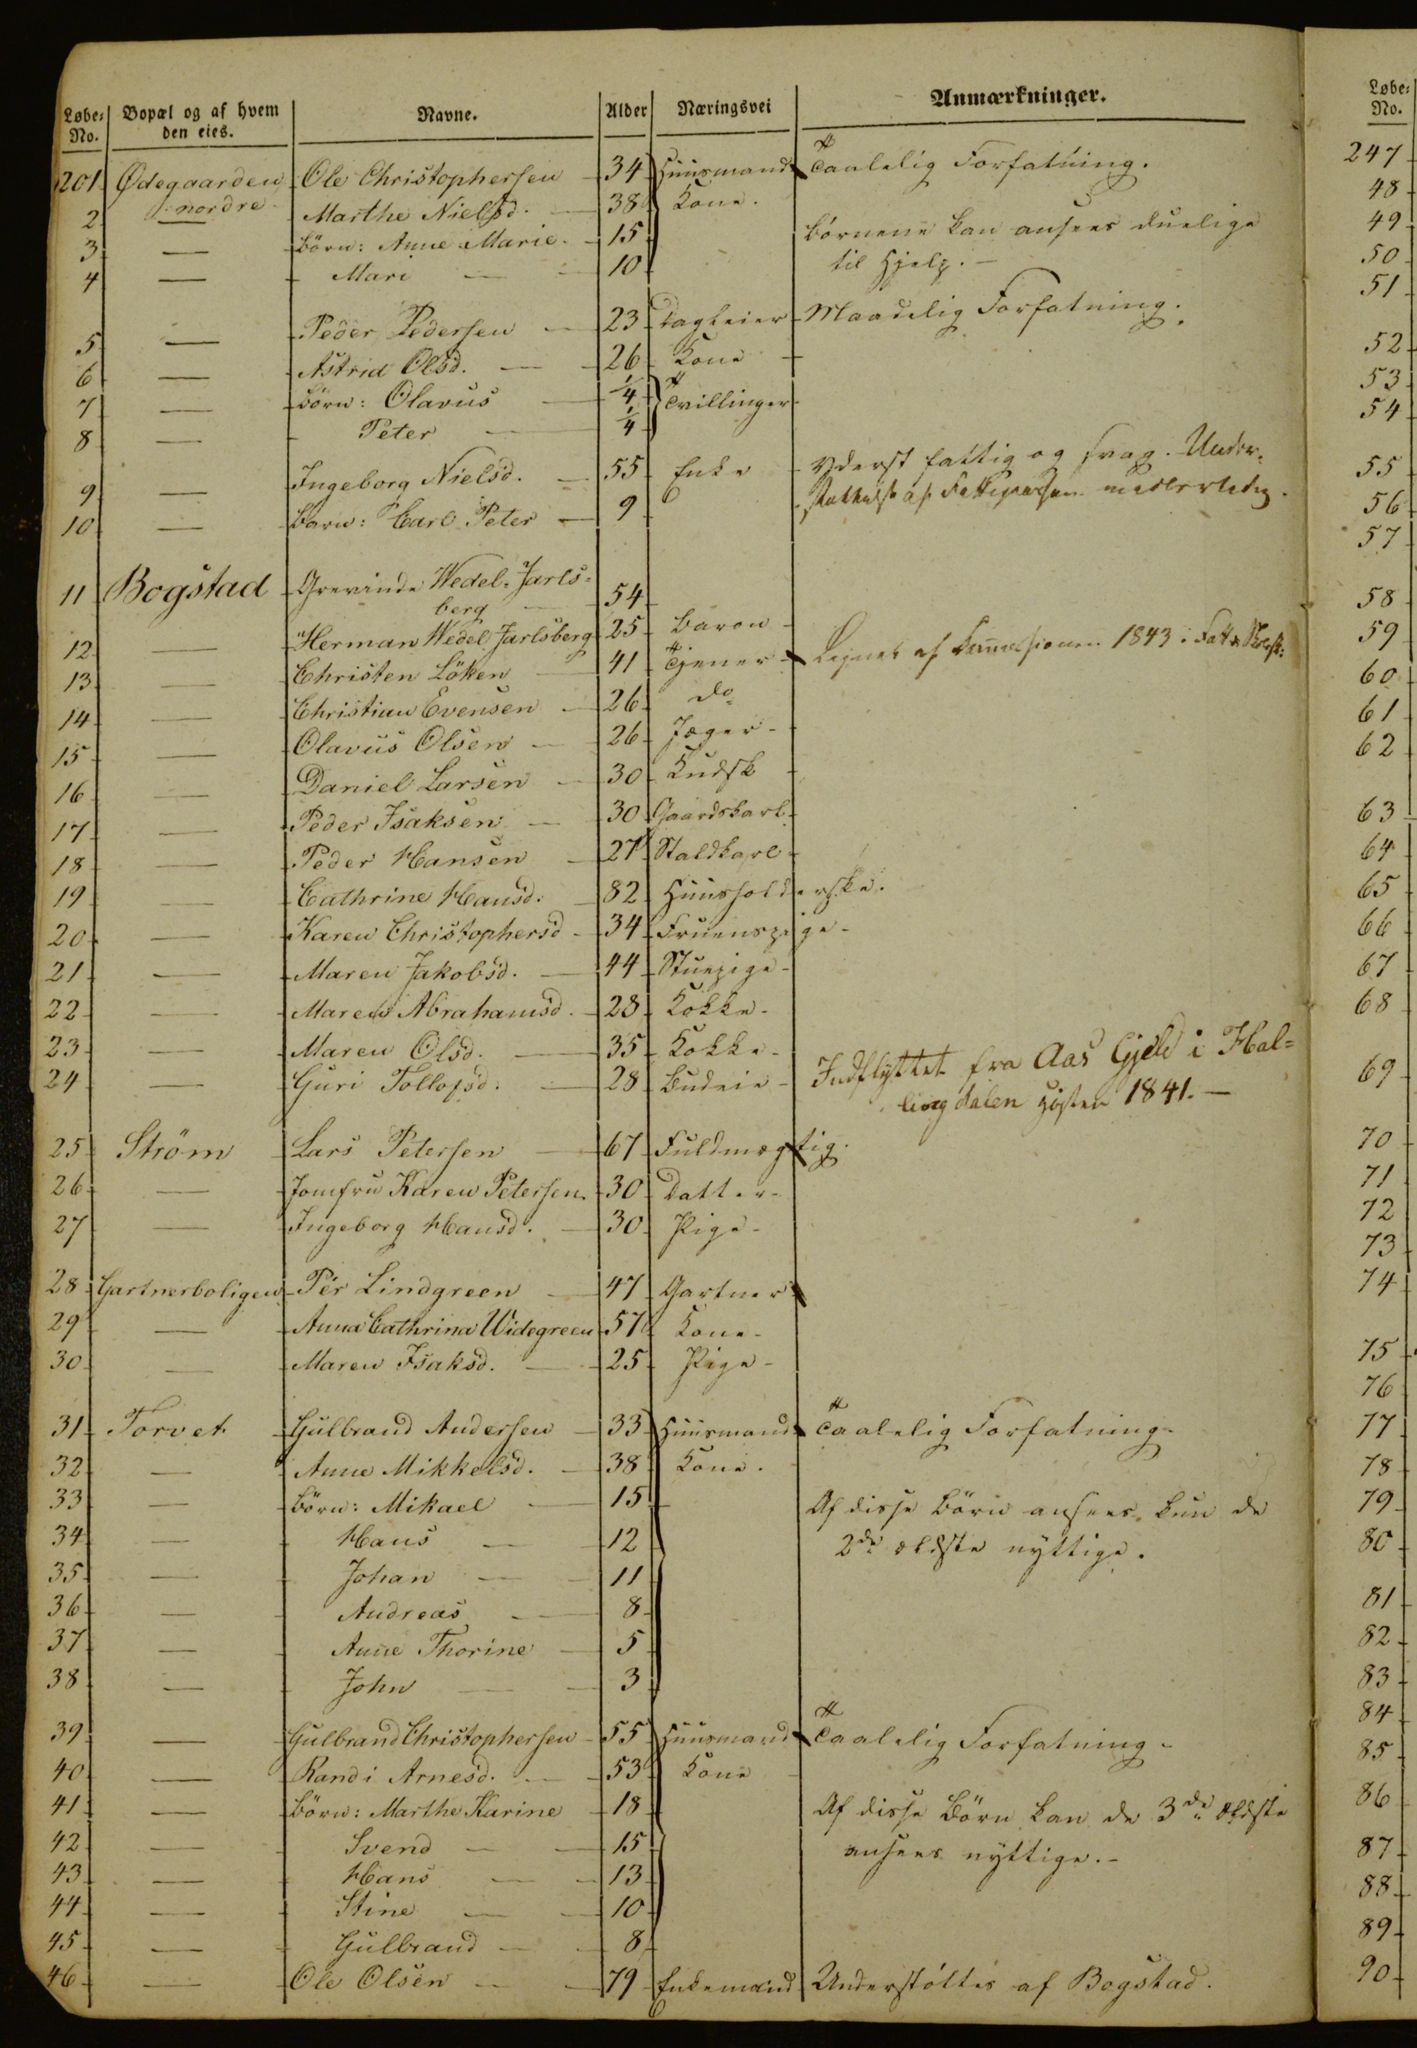 Løbe- No. Bopæl og af hvem den eies. Navne. Alder Næringsvei Anmærkninger.
201 Ødegaarden Ole Christophersen 34 Huusmand Taalelig Forfatning.
2 nordre Marthe Nielsd. 38 Kone.
3 Börn: Anne Marie. 15 Börnene kan ansees duelige
4 Mari 10 til Hjelp.
5 Peder Pedersen 23 Dagleier Maadelig Forfatning.
6 Astrid Olsd. 26 Kone
7 Börn: Olavus 1/4 Tvillinger
8 Peter 1/4
9 Ingeborg Nielsd. 55 Enke Yderst fattig og svag. Under-
10 Barn: Carl Peter 9 støttelse af Fattigvæsen
11 Bogstad Grevinde Wedel-Jarls-
berg 54
12 Herman Wedel Jarlsberg 25 Baron
13 Christen Löken 41 Tjener Lignet af Commissionen 1843.
14 Christian Evensen 26 do
15 Olavus Olsen 26 Jæger
16 Daniel Larsen 30 Kudsk
17 Peder Isaksen 30 Gaardskarl
18 Peder Hansen 27 Staldkarl
19 Cathrine Hansd. 82 Huusholderske.
20 Karen Christophersd 34 Fruenspige
21 Maren Jakobsd. 44 Stuepige
22 Maren Abrahamsd. 28 Kokke
23 Maren Olsd. 35 Kokke
24 Guri Tollofsd. 28 Budeie Indflyttet fra Aas Gjeld i Hal-
lingdalen Høsten 1841.
25 Ström Lars Petersen 67 Fuldmægtig.
26 Jomfru Karen Petersen. 30 Datter
27 Ingeborg Hansd. 30 Pige
28 Gartnerboligen Pér Lindgreen 47 Gartner
29 Anna Cathrina Widegreen 57 Kone
30 Maren Isaksd. 25 Pige
31 Torvet Gulbrand Andersen 33 Huusmand Taalelig Forfatning
32 Anne Mikkelsd. 38 Kone.
33 Börn: Mikael 15 Af disse Börn ansees kun de
34 Hans 12 2de ældste nyttige.
35 Johan 11
36 Andreas 8
37 Anne Thorine 5
38 John 3
39 Gulbrand Christophersen 55 Huusmand Taalelig Forfatning
40 Randi Arnesd. 53 Kone
41 Börn: Marthe Karine 18 Af disse Börn kan de 3de ældste
42 Svend 15 ansees nyttige.
43 Hans 13
44 Stine 10
45 Gulbrand 8
46 Ole Olsen 79 Enkemand Understöttes af Bogstad.
Løbe- No.
247
48
49
50
51
52
53
54
55
56
57
58
59
60
61
62
63
64
65
66
67
68
69
70
71
72
73
74
75
76
77
78
79
80
81
82
83
84
85
86
87
88
89
90